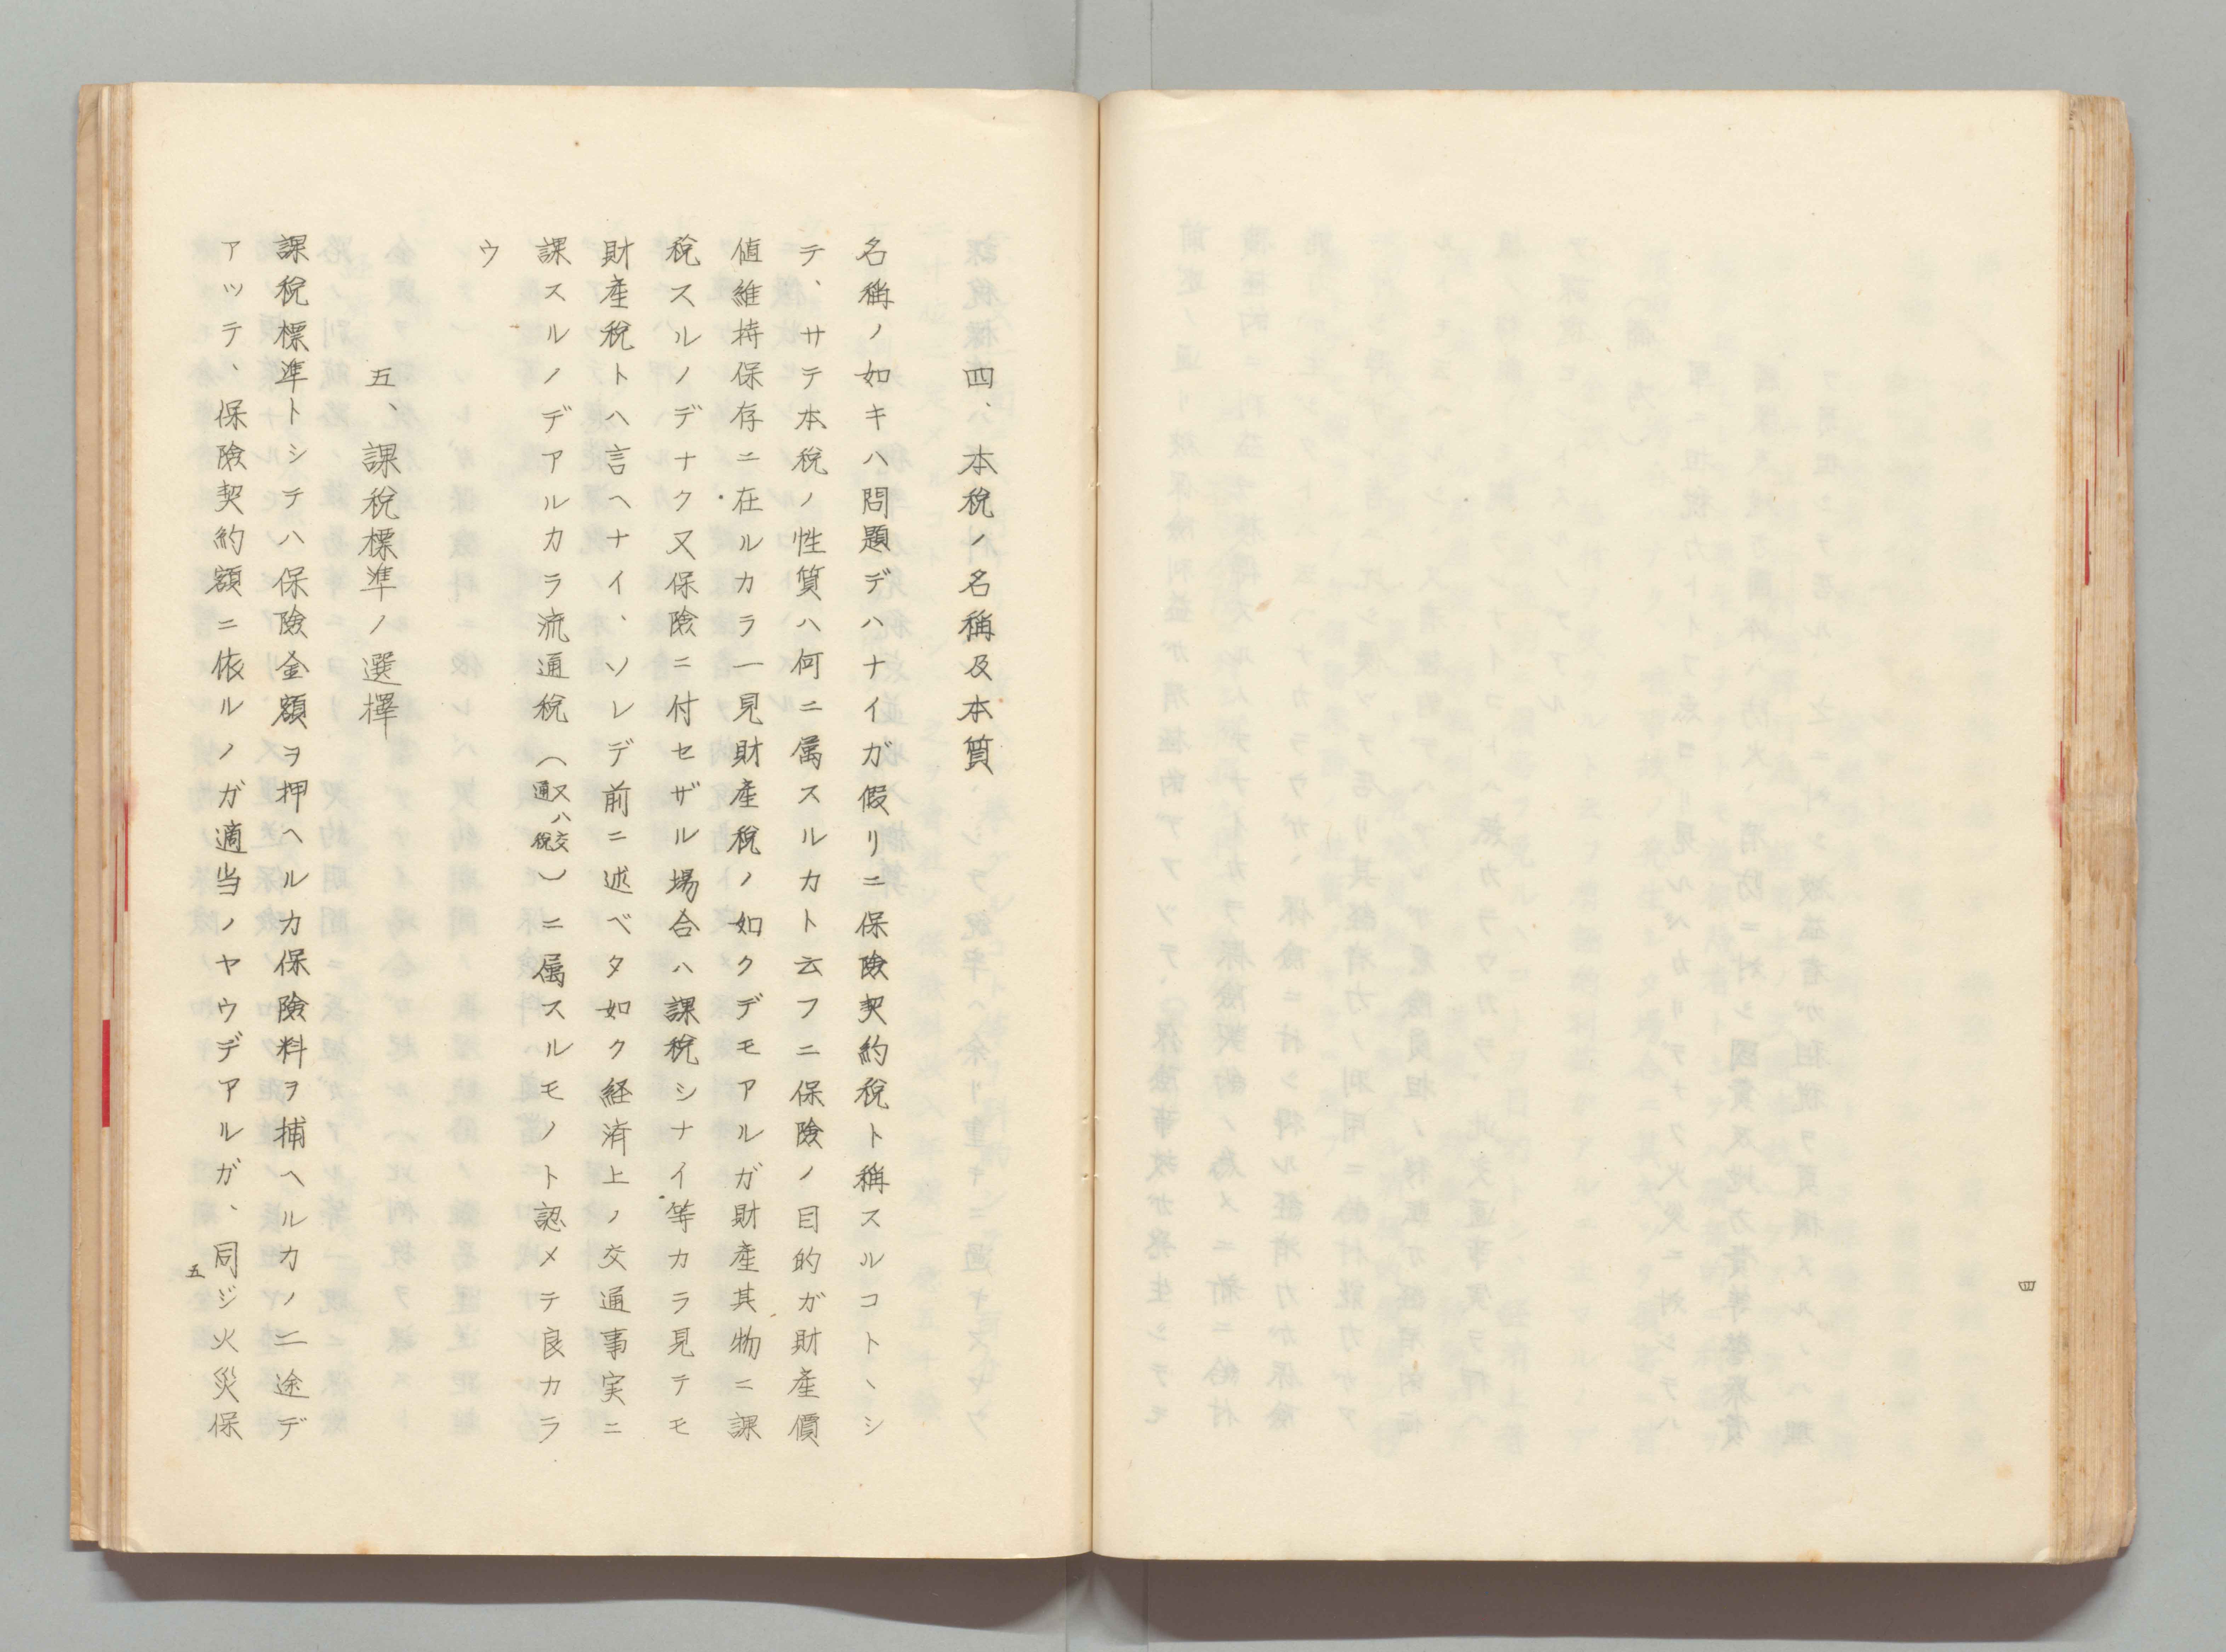 四
四、本税ノ名稱及本質
名稱ノ如キハ問題デハナイガ假リニ保險契約税ト稱スルコトヽシ
テ、サテ本税ノ性質ハ何ニ属スルカト云フニ保險ノ目的ガ財産價
値維持保存ニ在ルカラ一見財産税ノ如クデモアルガ財産其物ニ課
税スルノデナク又保險ニ付セザル場合ハ課税シナイ等カラ見テモ
財産税トハ言ヘナイ、ソレデ前ニ述ベタ如ク経済上ノ交通事実ニ
課スルノデアルカラ流通税（又ハ交通税）ニ属スルモノト認メテ良カラ
ウ
五、課税標準ノ選擇
課税標準トシテハ保險金額ヲ押ヘルカ保險料ヲ捕ヘルカノ二途デ
アッテ、保險契約額ニ依ルノガ適当ノヤウデアルガ、同ジ火災保
五